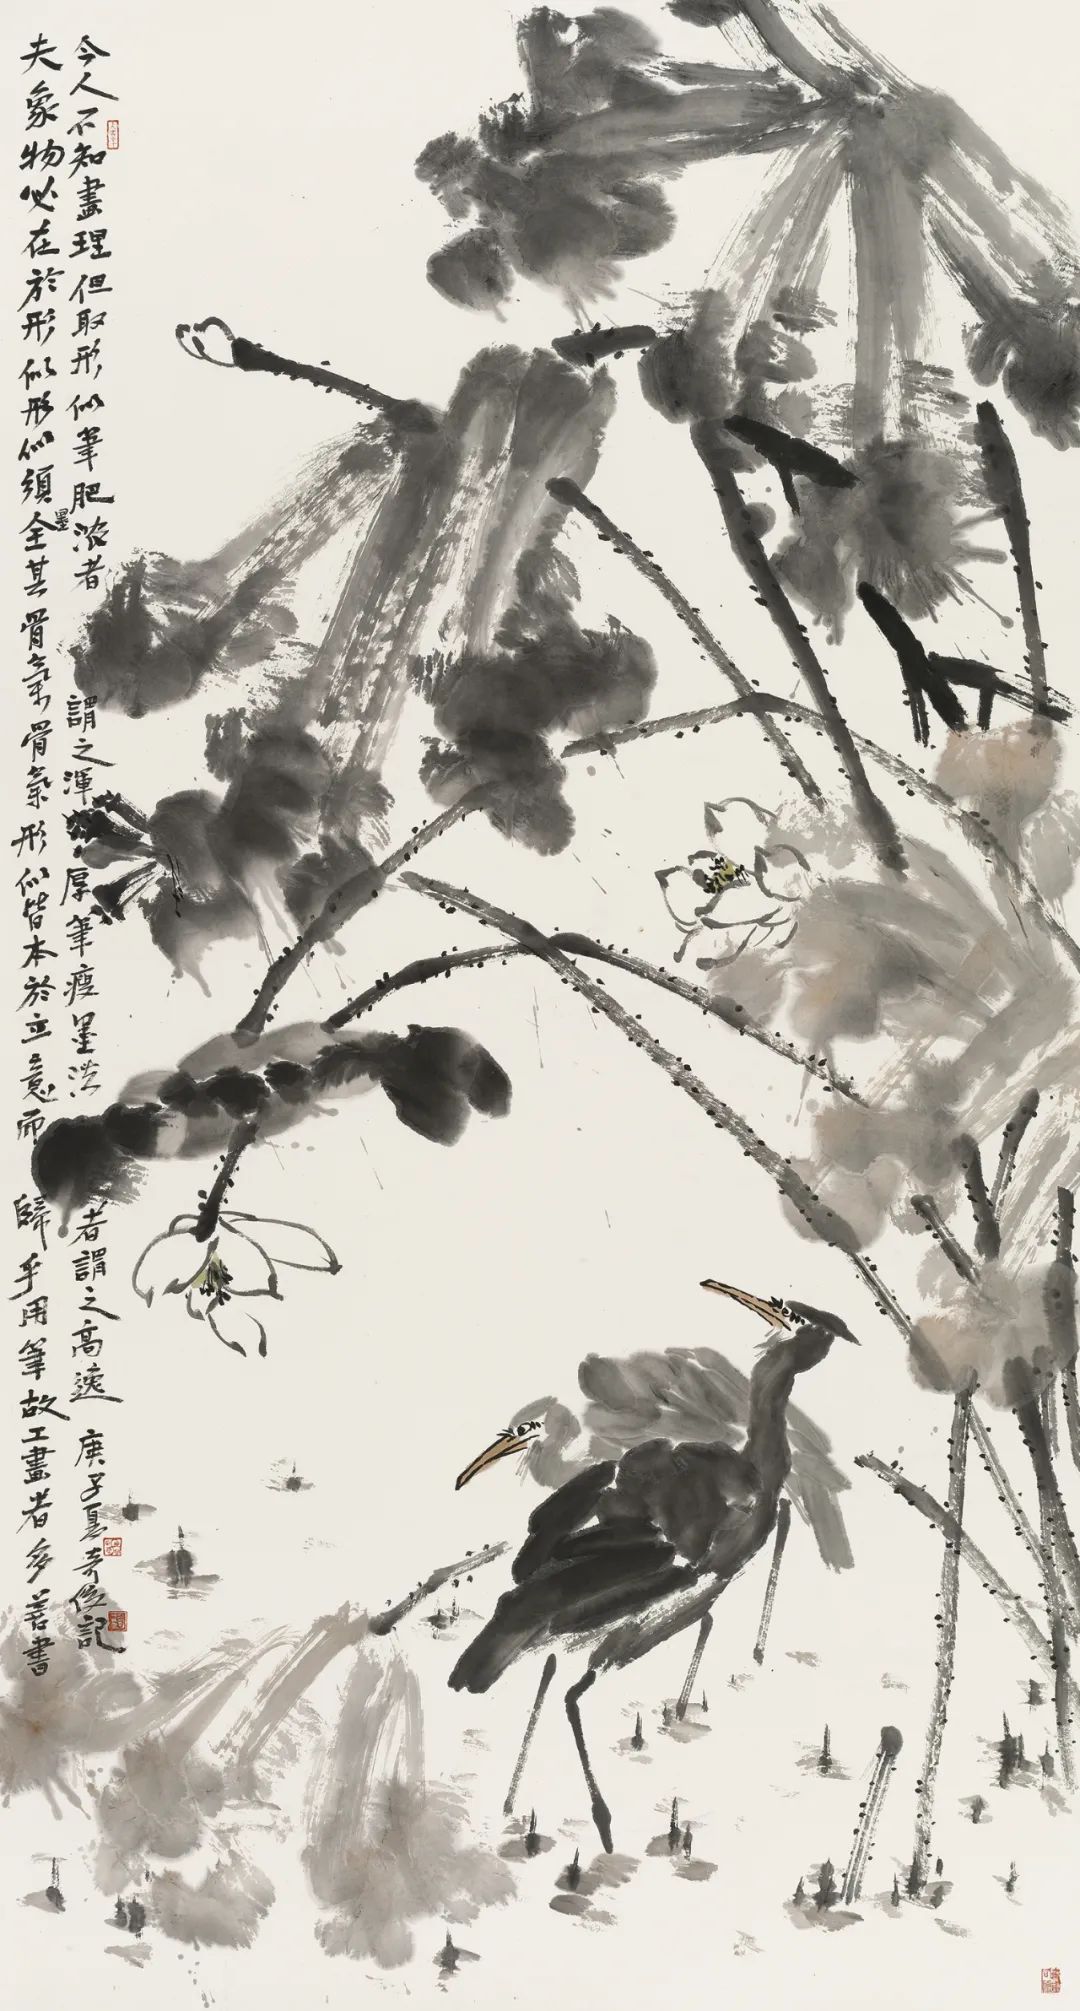 夫象物必在於形似形似須全其骨氣骨氣形似皆本於立意而歸乎用筆故工畫者多善書
今人不知畫理但取形似筆肥墨濃者謂之渾厚筆瘦墨淡者謂之高逸 庚子夏奇俊記